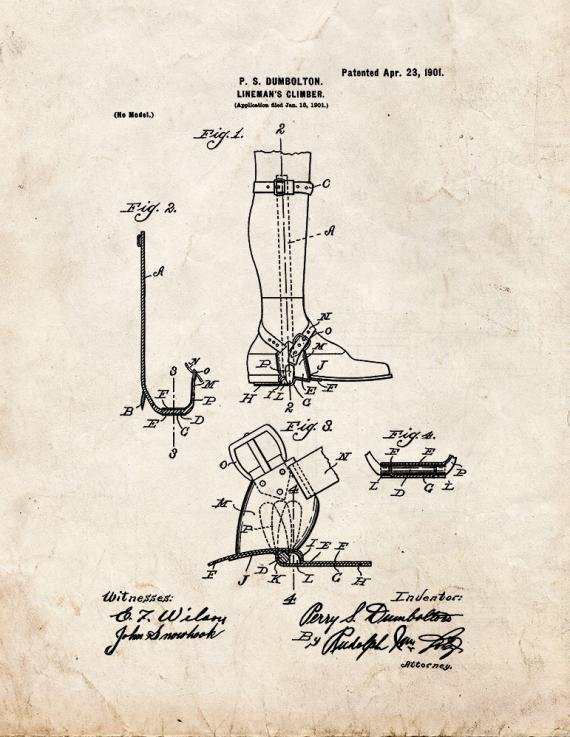 Patented Apr. 23, 1901.
P. S. DUMBOLTON.
LINEMAN'S CLIMBER.
(Application filed Jan. 18, 1901.)
(No Model.)
Fig. 1.
2
C
A
N
O
M
P
J
H I L G E F
2
Fig. 2.
A
3
N
O
M
F P
B
E D
G
3
Fig. 3.
O
N
4
M
P
I E F
F J D K L G H
4
Fig. 4.
F E
P
L D G L
Witnesses:
C. F. Wilson
John Snowhook
Inventor:
Perry S. Dumbolton
By Rudolph
Attorney.